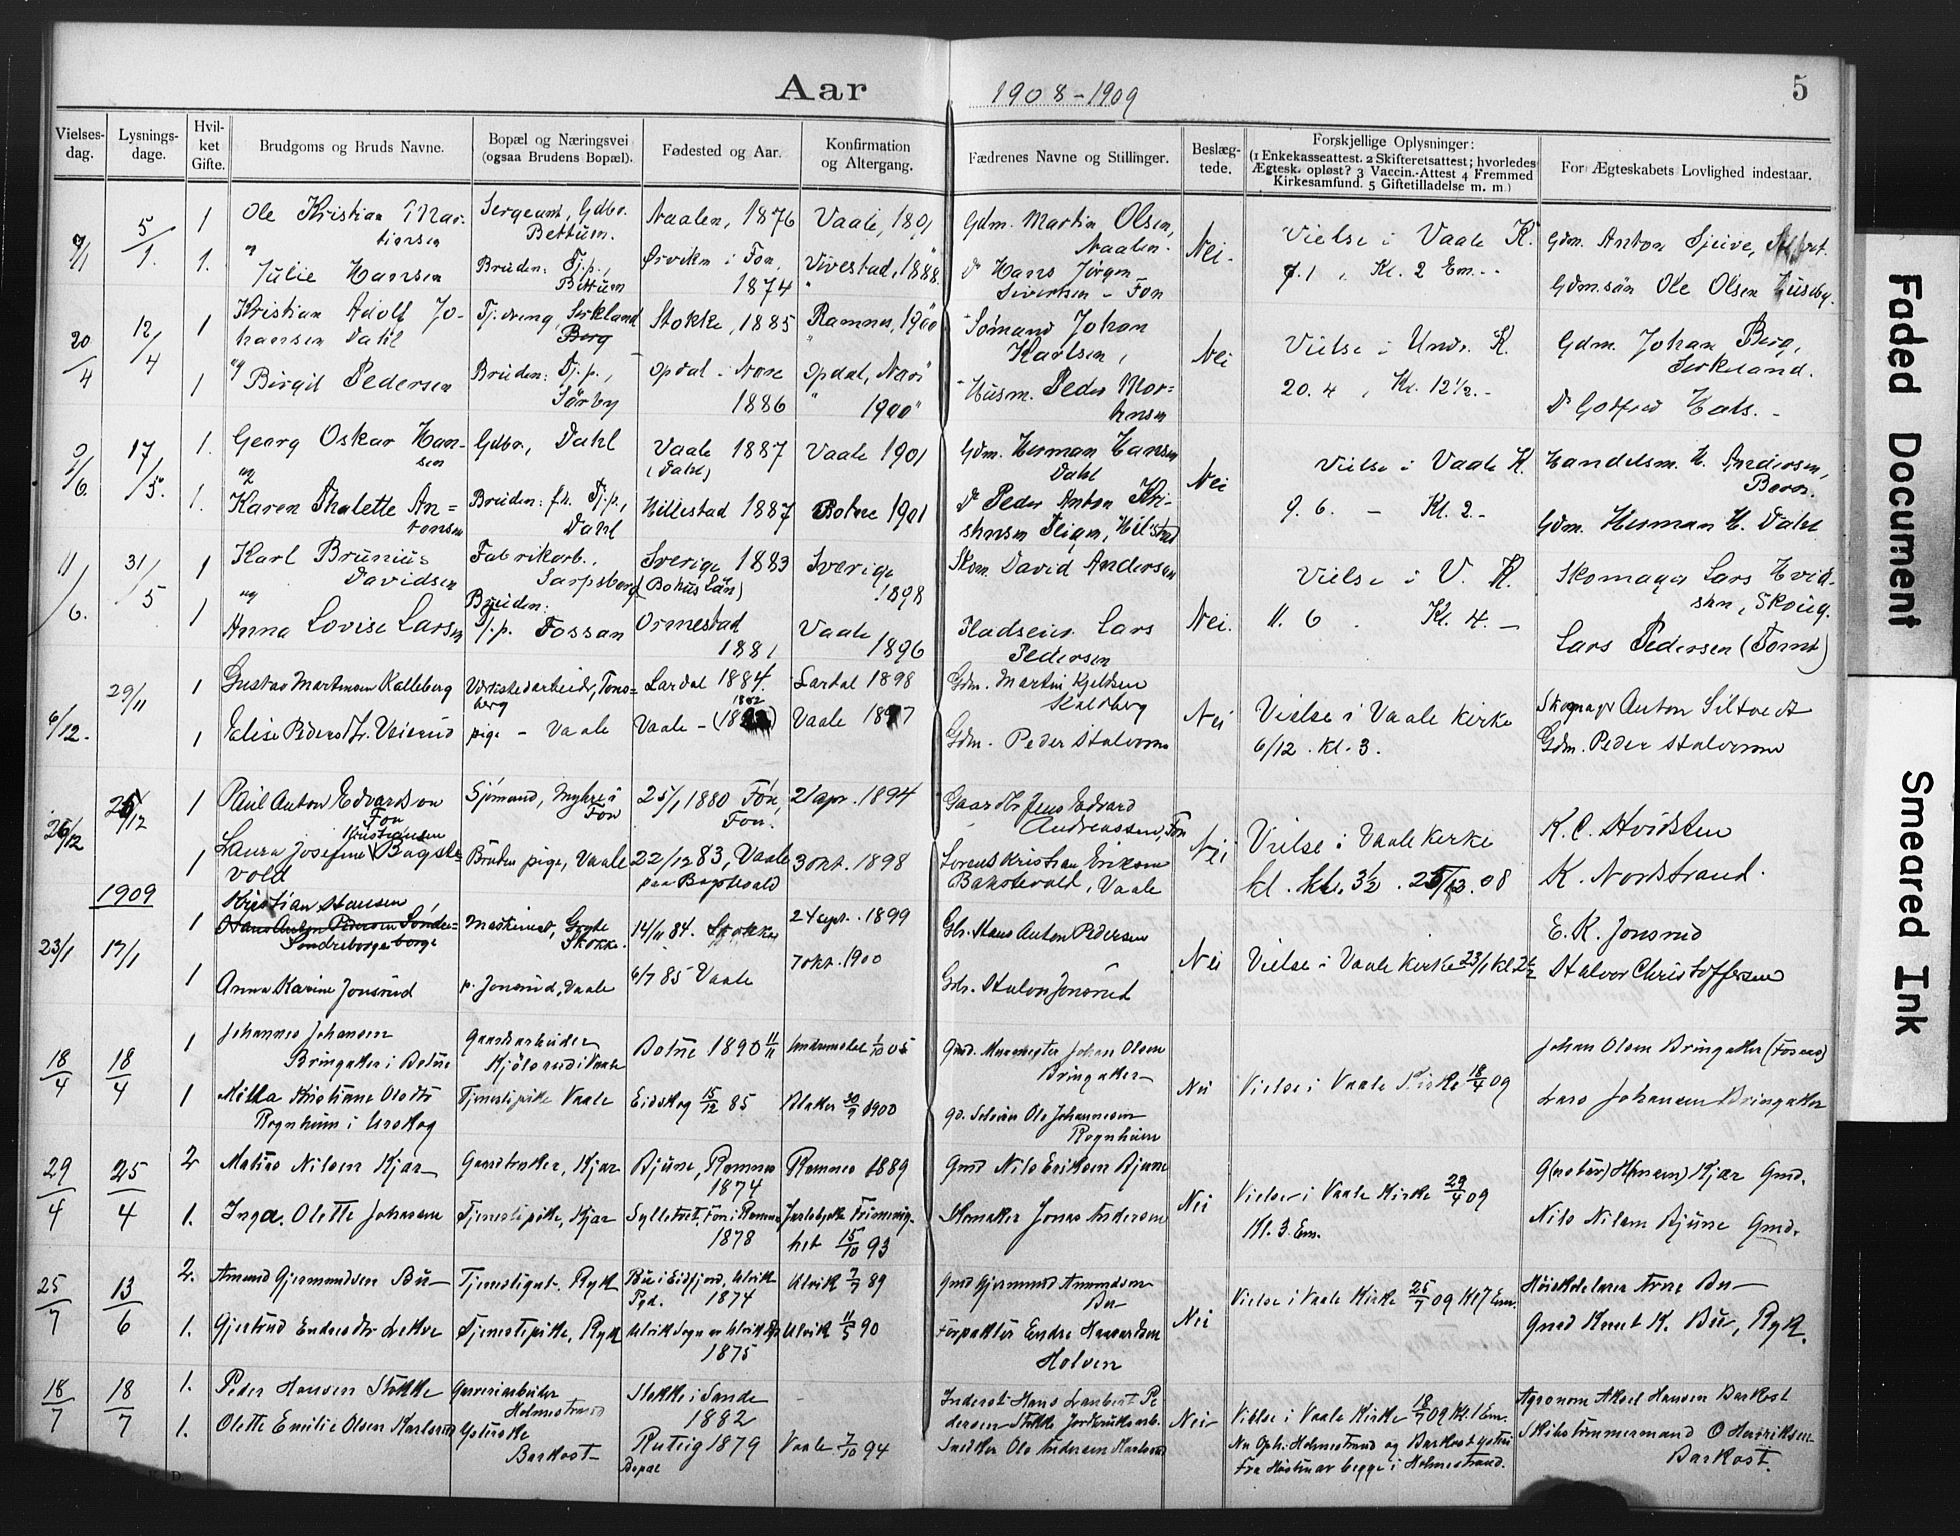 Aar 1908-1909
5
Vielses-dag.
Lysnings-dage.
Hvil-ket Gifte.
Brudgoms og Bruds Navne.
Bopæl og Næringsvei (ogsaa Brudens Bopæl).
Fødested og Aar.
Konfirmation og Altergang.
Fædrenes Navne og Stillinger.
Beslæg-tede.
Forskjellige Oplysninger:
(1 Enkekasseattest. 2 Skifteretsattest; hvorledes
Ægtesk. opløst? 3 Vaccin.-Attest 4 Fremmed
Kirkesamfund. 5 Giftetilladelse m. m.)
For Ægteskabets Lovlighed indestaar.
7/1 5/1. 1 Ole Kristian Mar-
tinsen
Sergeant, Gdbr.
Bettum.
Naalen, 1876 Vaale, 1891
Gdm. Martin Olsen,
Naalen.
Nei.
Vielse i Vaale K.
7.1, Kl. 2 Em.
Gdm. Anton Sjeive,
1. Julie Hansen
Bruden: Tj.p.,
Bettum
Ørviken i Fon,
1874
Vivestad, 1888
Hans Jörgen
Sivertsen - Fon
Gdm.sön Ole Olsen Huseby.
20/4 12/4 1 Kristian Adolf Jo-
hansen Dahl
Tj.dreng, Serkland
Berg
Stokke, 1885 Ramnes, 1900
Sömand Johan
Karlsen,
Nei
Vielse i Undr. K.
20.4, Kl. 12½.-
Gdm. Johan Berg,
Serkeland.
1 Birgit Pedersen
Bruden: Tj.p.,
Sörby
Opdal i Nore
1886
Opdal, Nore
1900
Husm. Peder Mor-
tensen
Godfred Hals.
9/6. 17/5. 1. Georg Oskar Han-
sen
Gdbr., Dahl
Vaale 1887
(Dahl)
Vaale 1901
Gdm. Herman Hansen
Dahl
Nei
Vielse i Vaale K.
9.6. - Kl. 2.-
Handelsm. H. Andersen,
1. Karen Thalette An-
tonsen
Bruden: fh. Tj.p.,
Dahl
Hillestad 1887 Botne 1901
Peder Anton Kri-
stensen Teigen, Hillestad
Gdm. Herman H. Dahl
11/6. 31/5 1 Karl Brunius
Davidsen
Fabrikarb.,
Sarpsborg
Sverige 1883
(Bohus Län)
Sverige
1898
Skom. David Andersen
Nei.
Vielse i V. K.
11.6. Kl. 4. -
Skomager Lars Hvid-
sten, Skoug.
1 Anna Lovise Larsen
Bruden:
Tj.p. Fossan
Ormestad
1881
Vaale
1896
Pladseier Lars
Pedersen
Lars Pedersen (Tomt)
6/12. 29/11 1 Gustav Martinsen Kalleberg
Værkstedarbeider, Tøns-
berg
Lardal 1884. Lardal 1898
Gdm. Martin Kjeldsen
Kalleberg
Nei
Vielse i Vaale kirke
6/12. kl. 3.
Skomager Anton Siltvedt
1 Elise Pedersdtr. Veierud
pige - Vaale
Vaale - 1882 Vaale 1897
Gdm. Peder Halvorsen
Gdm. Peder Halvorsen
26/12 25/12 1 Paul Anton Edvardsen
Fon
Sjömand, Myhre i
Fon
25/1 1880 Fon,
Fon.
21 apr. 1894
Gaardbr. Jens Edvard
Andreassen, Fon
Nei
Vielse i Vaale kirke
kl. 3½. 26/12. 08
K. C. Hvidsten
1 Laura Josefine Kristiansen Bagste-
vold
Bruden pige, Vaale
22/12 83, Vaale
paa Bagstevold
3 okt. 1898
Lorens Kristian Eriksen
Bakstevold, Vaale
K. Nordstrand.
1909
23/1 17/1 1 Kristian Hansen,
Hans Anton Pedersen Sönder-
Sondreborge
Maskinist,
Stokke.
14/11 84. Stokke
24 apr. 1899
Gbr. Hans Anton Pedersen
Nei
Vielse i Vaale kirke 23/1 kl. 2½
E. K. Jonsrud
1 Anna Karine Jonsrud
p. Jonsrud, Vaale
6/7 85 Vaale
7 okt. 1900
Gbr. Halvor Jonsrud
Halvor Christoffersen
18/4 18/4 1 Johannes Johansen
Bringaker i Botne
Gaardsarbeider
Kjölsrud i Vaale
Botne 1890 11/11
Gmd. Murmester Johan Olsen
Bringaker
Nei
Vielse i Vaale Kirke 18/4 09
Johan Olsen Bringaker
1 Milla Kristiane Olsdtr
Rognheim i Urskog
Tjenestepike Vaale
Eidskog 15/12 85 Blaker 30/9 1900
Ole Johannesen
Rognheim
Lars Johansen Bringaker
29/4 25/4 2 Matias Nilsen Kjær
Gaardbruker, Kjær
Bjune, Ramnes
1874
Ramnes 1889
Gmd Nils Eriksen Bjune
Nei
Vielse i Vaale Kirke 29/4 09
Kl. 3. Em.
G(ustav) H(ansen) Kjær Gmd.
1. Inga Olette Johansen
Tjenestepike, Kjær
Fon i Ramnes
1878
Jarlsbygds Frimenig-
het 15/10 93
Skomaker Jonas Andersen
Nils Nilsen Bjune Gmd.
25/7 13/6 2. Amund Gjermundsen Bu
Tjenestegut. Ryk
Bu i Eidfjord, Ulvik
Pgd. 1874
Ulvik 7/7 89
Gmd Gjermund Amundsen
Bu
Nei
Vielse i Vaale Kirke 25/7 09 Kl 7 Em.
Arne Bu
1. Gjertrud Endresdtr Lekve
Tjenestepike, Ryk
1875
Ulvik 11/5 90
Forpakter Endre Haavardsen
Holven
Gmd Knut K. Bu, Ryk.
18/7 18/7 1. Peder Hansen Stokke
Garveriarbeider
Holmestrand
Stokke i Sande
1882
-
Inderst Hans Lambert Pe-
dersen Stokke Jordbruksarb.
Nei
Vielse i Vaale Kirke 18/7 09 Kl. 1 Em.
Nu Oph: Holmestrand og Barkost ysteri
Fra Höstmar begge i Holmestrand.
Agronom Aksel Hansen Barkost
1. Olette Emilie Olsen Karlsrud
Ysterske
Barkost
Rutsig 1879
Vaale 7/10 94
Snedker Ole Andersen Karlsrud
Skibstömmermand O Henriksen
Barkost.
Faded Document
Smeared Ink